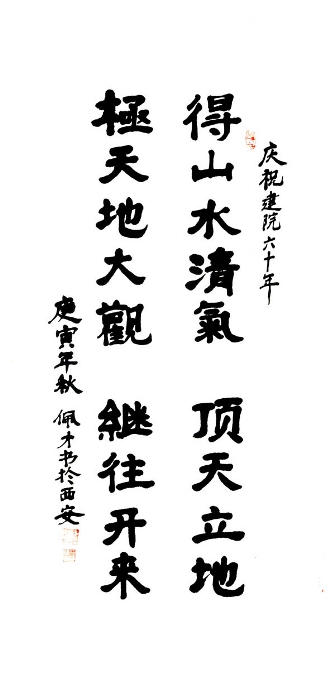 庆祝建院六十年
得山水清氣 顶天立地
極天地大觀 継往开来
庚寅年秋 佩才书於西安